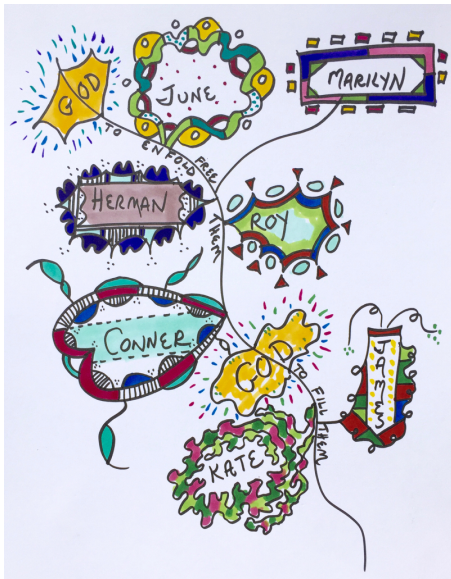 GOD
JUNE
MARILYN
TO ENFOLD FREE THEM
HERMAN
ROY
CONNER
GOD
TO FILL THEM
JAMES
KATE